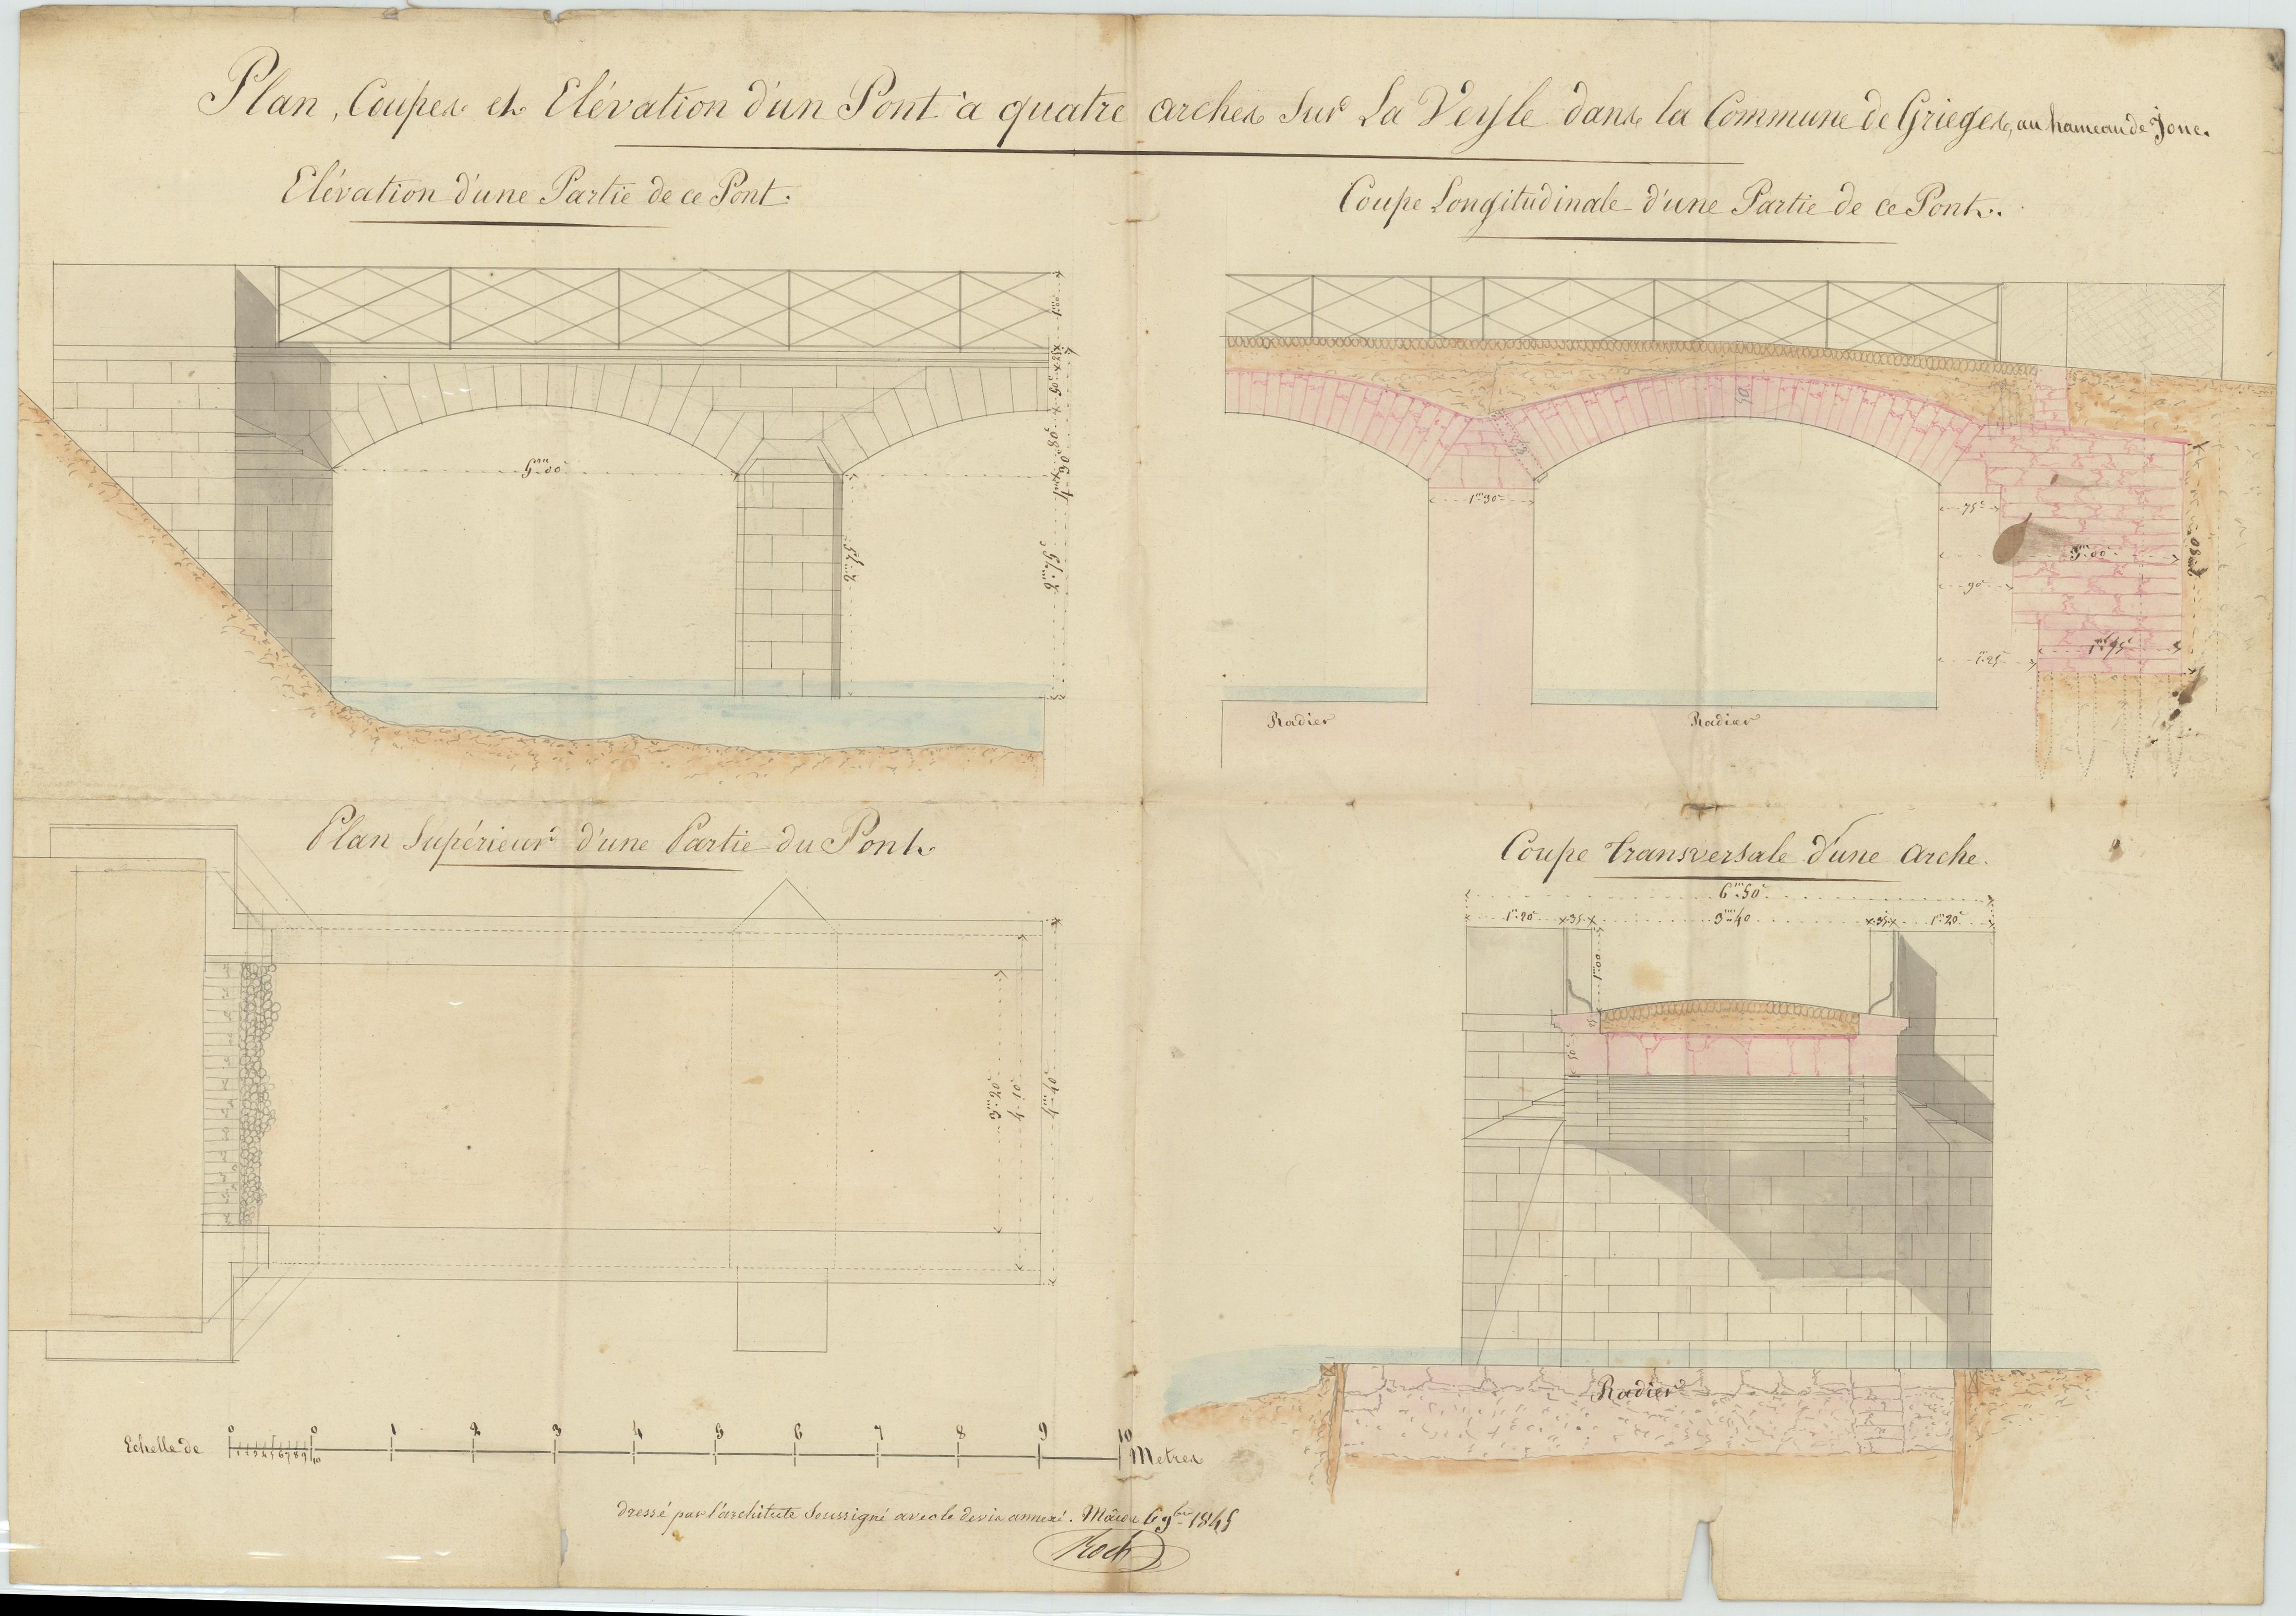 Plan, Coupes et Elévation d'un Pont à quatre arches Sur La Veyle dans la Commune de Grieges, au hameau de Jone.
Elévation d'une Partie de ce Pont.
Coupe Longitudinale d'une Partie de ce Pont.
1.m00
25
50c
80c
4.m30c
5.m00c
2.m75
2.m75c
50
1.m30c
75c
3.m00c
90c
1.m25
1.m95c
Radier
Radier
Plan Supérieur d'une Partie du Pont.
3.m20c
4.10c
4.m40c
Coupe transversale d'une Arche.
6.m50c
1.m20 35 3.m40 35 1.m20c
1.m00
50c
Radier
Echelle de
0 1 2 3 4 5 6 7 8 9 10
0 1 2 3 4 5 6 7 8 9 10 Metres
dressé par l'architecte Soussigné avec le devis annexé. Mâcon le 6 9bre 1845
Roch